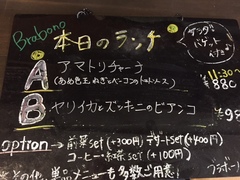 Brabono
本日のランチ
サンタ!!
バケット
ハデス!!
11:30~
A アマトリチャーナ
(あめ色玉ねぎとベーコンのトマトソース) ¥880
B ヤリイカとズッキーニのビアンコ ¥9
option→前菜set(+300円)デザートset(+400円)
コーヒー・紅茶set(+100円)
その他、単品メニューも多数ご用意
ブラボー!